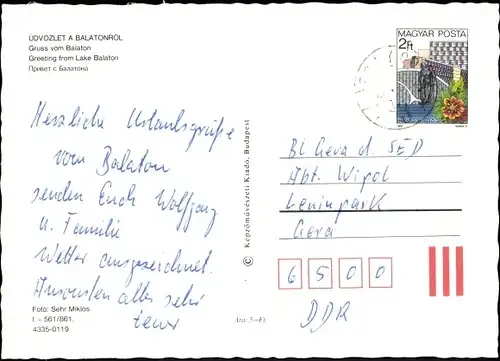 ÜDVÖZLET A BALATONRÓL
Gruss vom Balaton
Greeting from Lake Balaton
Привет с Балатона
Herzliche Urlaubsgrüße
vom Balaton
senden Euch Wolfgang
u. Familie
Wetter ausgezeichnet.
Ansonsten alles sehr
teuer
Foto: Sehr Miklós
I – 561/861.
4335-0119
© Képzőművészeti Kiadó, Budapest
Ára: 5.–Ft.
MAGYAR POSTA
2Ft
BL Gera d. SED
Abt. Wipol
Leninpark
Gera
6500
DDR